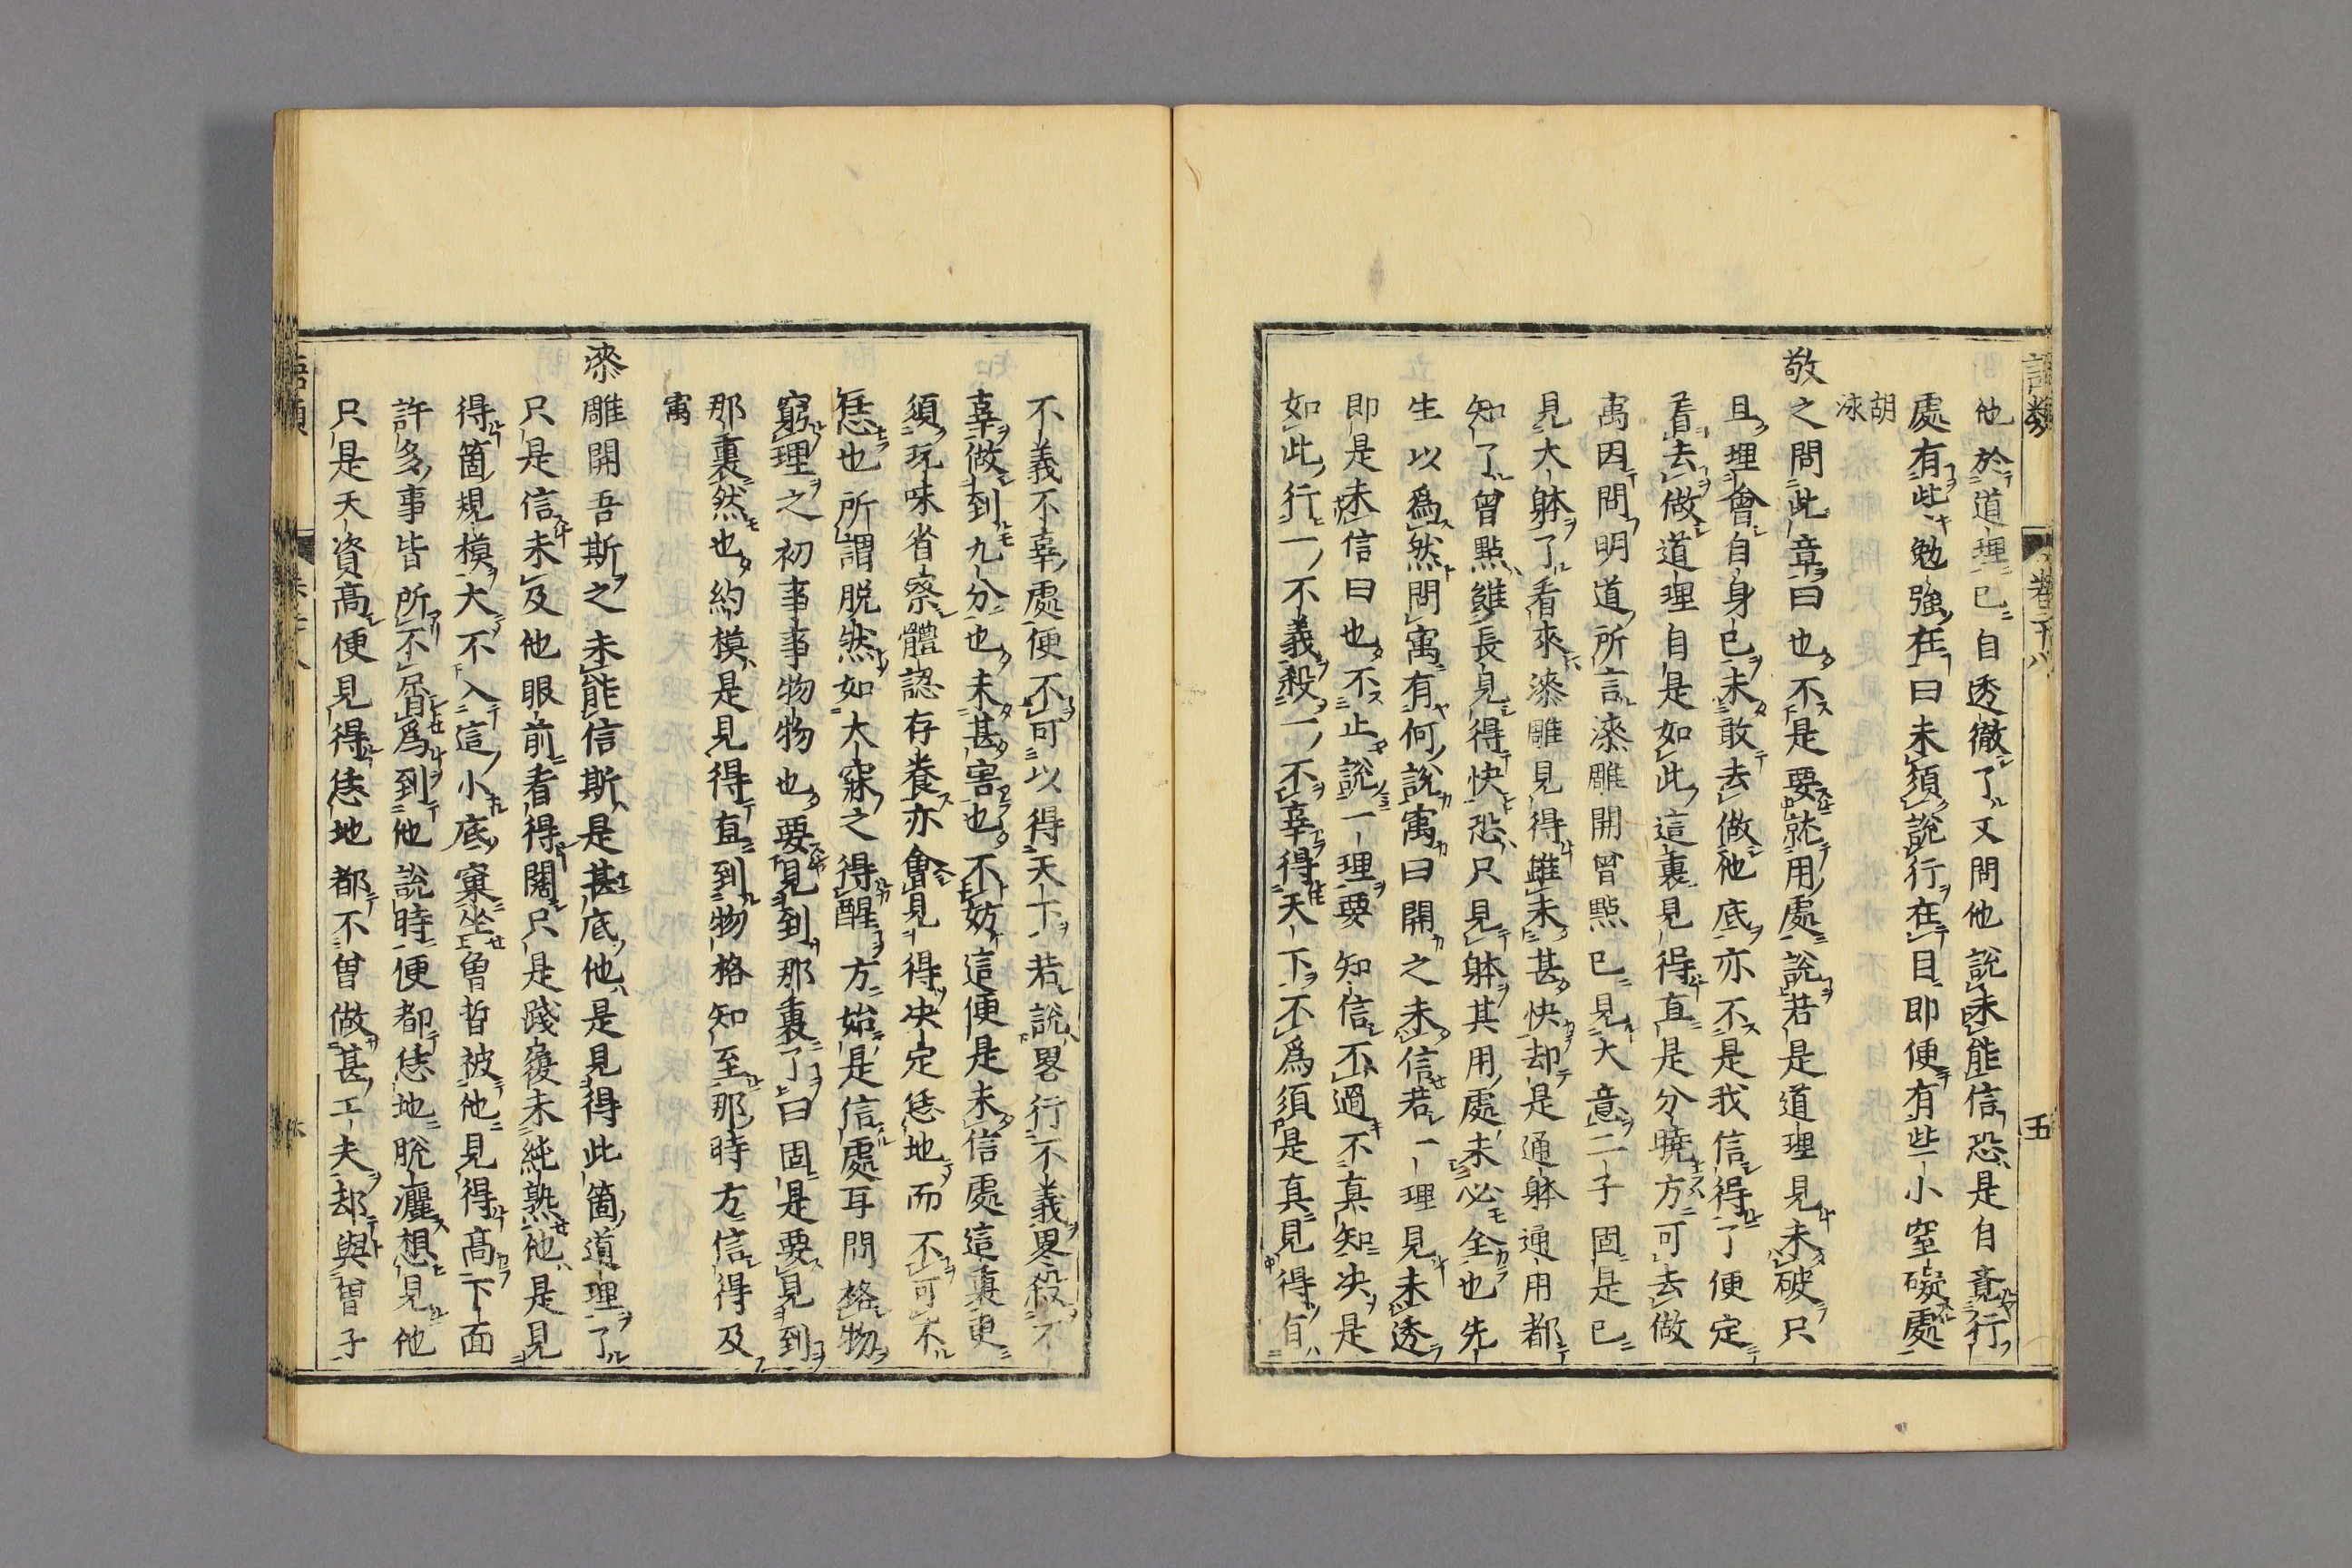 語類
卷二十八
五
他於道理已自透徹了又問他說未能信恐是自覺行
處有些勉強在曰未須說行在目即便有些小窒礙處
胡泳
敬之問此章曰也不是要就用處說若是道理見未破只
且理會自身已未敢去做他底亦不是我信得了便定
看去做道理自是如此這裏見得直是分曉方可去做
寓因問明道所言漆雕開曾點已見大意二子固是已
見大躰了看來漆雕見得雖未甚快却是通躰通用都
知了曾點雖長見得快恐只見躰其用處未必全也先
生以爲然問寓有何說寓曰開之未信若一理見未透
即是未信曰也不止說一理要知信不過不真知决是
如此行一不義殺一不辜得天下不爲須是真見得有
不義不辜處便不可以得天下若說畧行不義畧殺不
辜做到九分也未甚害也不妨這便是未信處這裏更
須玩味省察體認存養亦會見得决定恁地而不可不
恁也所謂脫然如大寐之得醒方始是信處耳問格物
窮理之初事事物物也要見到那裏了曰固是要見到
那裏然也約模是見得直到物格知至那時方信得及
寓
漆雕開吾斯之未能信斯是甚底他是見得此箇道理了
只是信未及他眼前看得闊只是踐履未純熟他是見
得箇規模大不入這小底窠坐曾晳被他見得高下面
許多事皆所不屑爲到他說時便都恁地脫灑想見他
只是天資高便見得恁地都不曾做甚工夫却與曾子